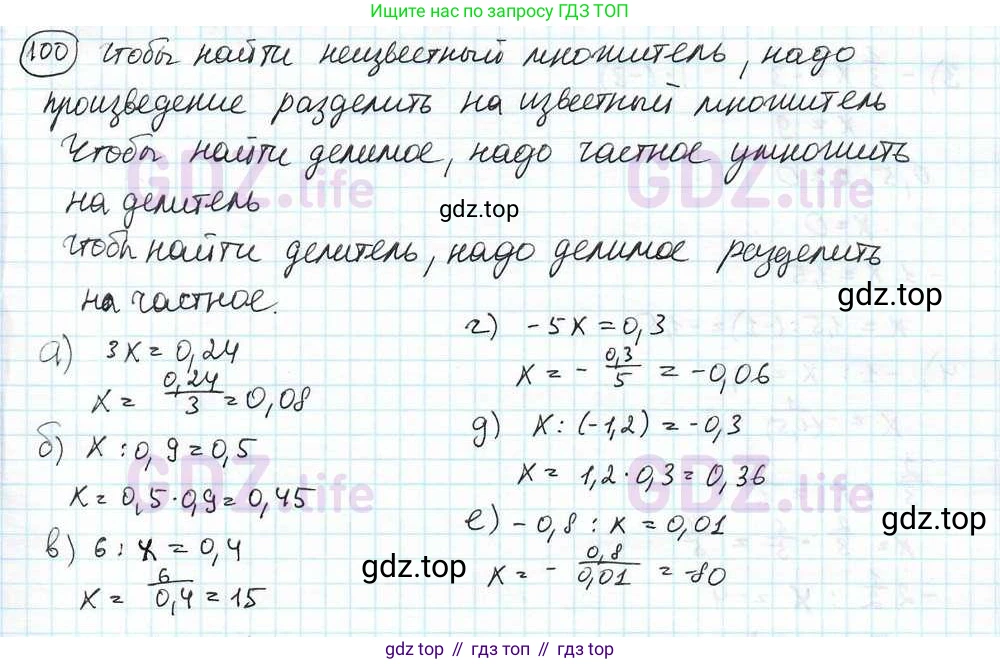 Ищите по запросу ГДЗ ТОП
100 Чтобы найти неизвестный множитель, надо
произведение разделить на известный множитель
Чтобы найти делимое, надо частное умножить
на делитель
Чтобы найти делитель, надо делимое разделить
на частное.
а) 3x = 0,24
x = 0,24/3 = 0,08
б) x : 0,9 = 0,5
x = 0,5 · 0,9 = 0,45
в) 6 : x = 0,4
x = 6/0,4 = 15
г) -5x = 0,3
x = - 0,3/5 = -0,06
д) x : (-1,2) = -0,3
x = 1,2 · 0,3 = 0,36
е) -0,8 : x = 0,01
x = - 0,8/0,01 = -80
GDZ.life
GDZ.life
GDZ.life
GDZ.life
gdz.top
gdz.top
gdz.top
gdz.top
gdz.top // gdz.top // gdz.top